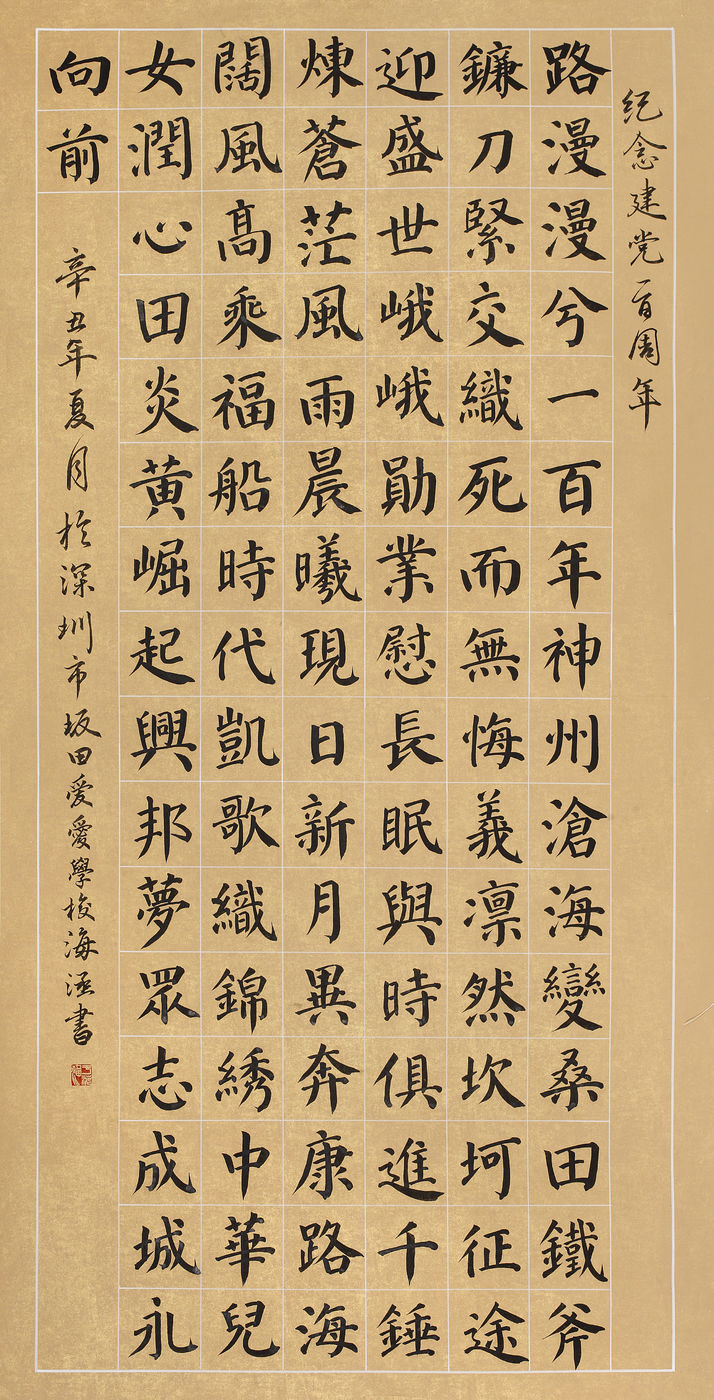 纪念建党百周年
路漫漫兮一百年神州滄海變桑田鐵斧
鐮刀緊交織死而無悔義凛然坎坷征途
迎盛世峨峨勛業慰長眠與時俱進千錘
煉蒼茫風雨晨曦現日新月異奔康路海
闊風高乘福船時代凱歌織錦綉中華兒
女潤心田炎黃崛起興邦夢眾志成城永
向前
辛丑年夏月於深圳市坂田愛愛學校海涵書